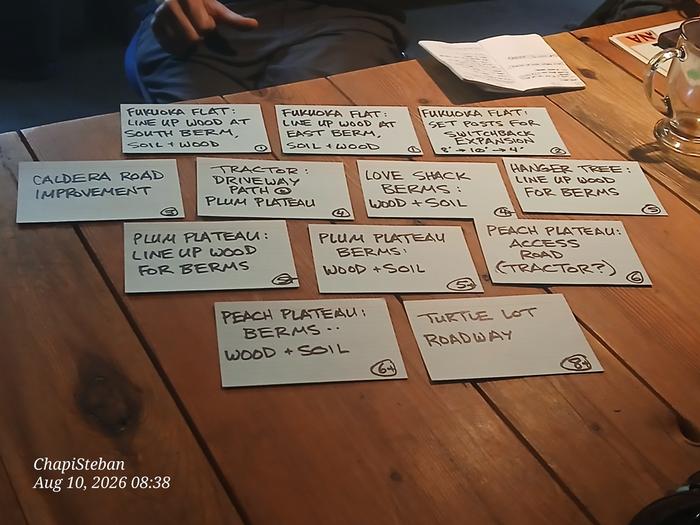 FUKUOKA FLAT:
LINE UP WOOD AT
SOUTH BERM,
SOIL + WOOD
1
FUKUOKA FLAT:
LINE UP WOOD AT
EAST BERM,
SOIL + WOOD
FUKUOKA FLAT:
SET POSTS FOR
SWITCHBACK
EXPANSION
8' → 10' → 4'
2
CALDERA ROAD
IMPROVEMENT
3
TRACTOR:
DRIVEWAY
PATH @
PLUM PLATEAU
4
LOVE SHACK
BERMS:
WOOD + SOIL
HANGER TREE:
LINE UP WOOD
FOR BERMS
5
PLUM PLATEAU:
LINE UP WOOD
FOR BERMS
PLUM PLATEAU
BERMS:
WOOD + SOIL
PEACH PLATEAU:
ACCESS
ROAD
(TRACTOR?)
6
PEACH PLATEAU:
BERMS --
WOOD + SOIL
TURTLE LOT
ROADWAY
ChapiSteban
Aug 10, 2026 08:38